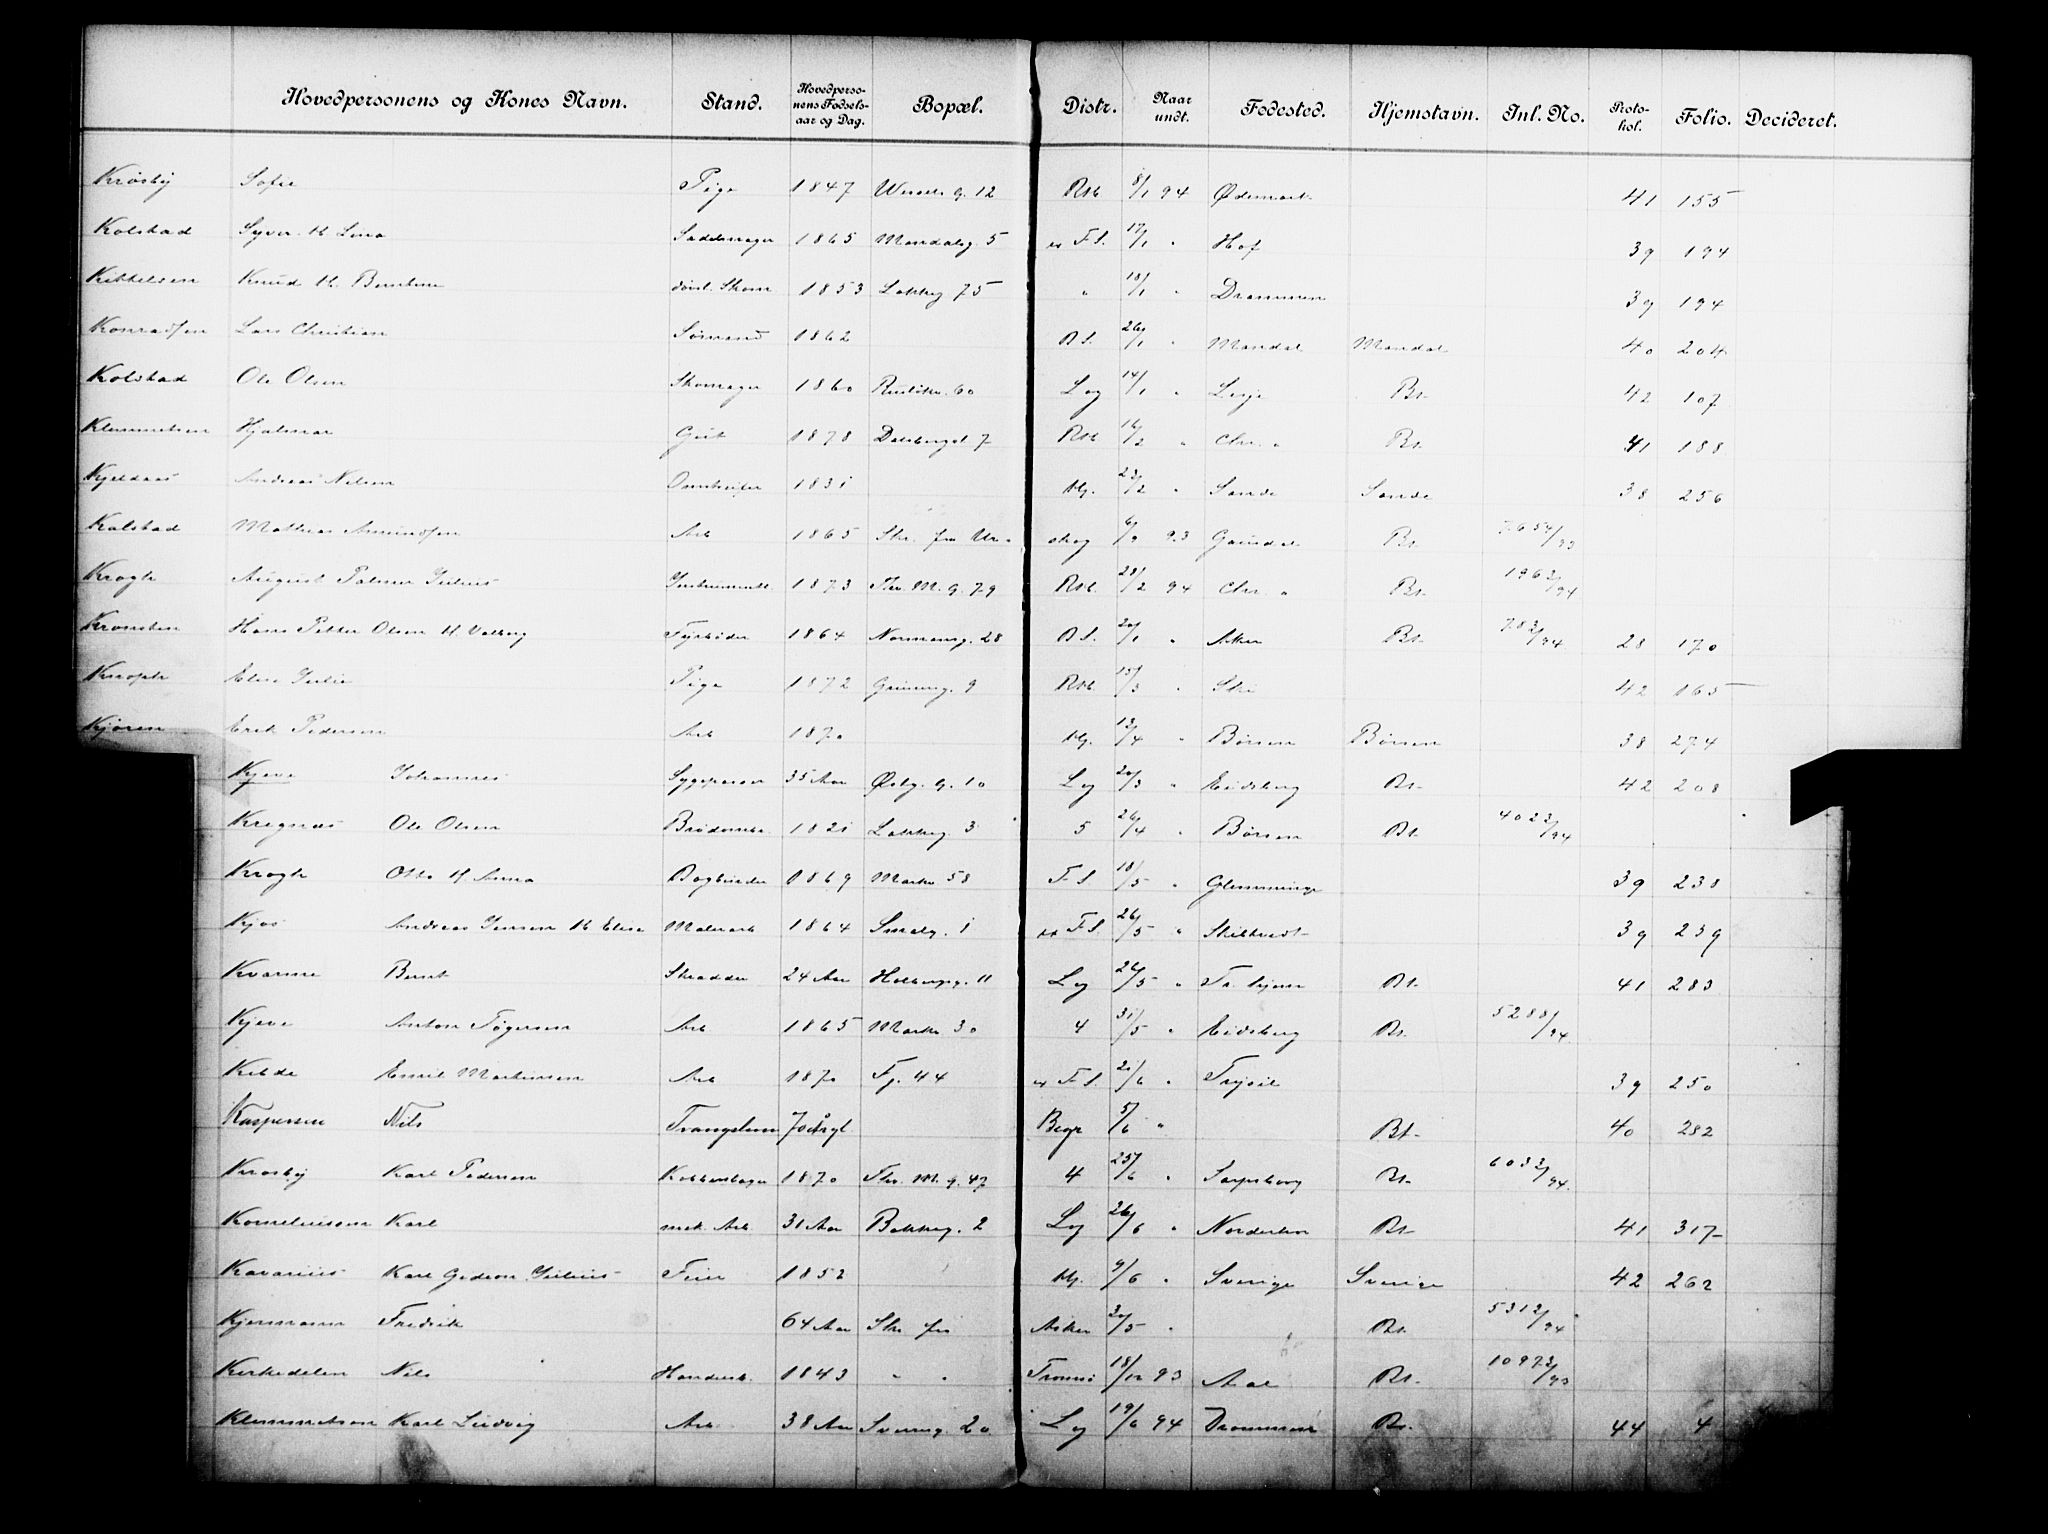 Hovedpersonens og Kones Navn. Stand. Hovedperso-nens Fødsels-aar og Dag. Bopæl. Distr. Naar undt. Fødested. Hjemstavn. Inl. No. Proto-kol. Folio. Decideret.
Krosby Sofie Pige 1847 Wessels g. 12 Rst. 8/1 94 Ødemark 41 155
Kolstad Syver. H. Lina Sadelmager 1865 Mandalsg. 5 F.S. 17/1 " Hof 39 194
Kittelsen Knud H. Berntine Skom 1853 Lakkeg 75 " 18/1 " Drammen 39 194
Konradsen Lars Christian Sømand 1862 B.S. 26/1 " Mandal Mandal 40 204
Kolstad Ole Olsen Skomager 1860 Ruseløkv. 60 Lag 14/1 " Lesje Bt. 42 107
Klemmetsen Hjalmar Gut 1878 Dalsbergst 7 Rst. 16/2 " Chr. a Bt. 41 188
Kjeldaas Andreas Nilsen 1831 Hj. 23/2 " Sande Sande 38 256
Kolstad Mathias Amundsen Arb 1865 Skr. fra Ur- skog 6/9 93 Gausdal Bt. 7654/93
Krogh August Palmer Julius Instrumentm. 1873 Thv. M. g. 79 Rst. 28/2 94 Chr. a Bt. 1962/94
Kronsten Hans Petter Olsen H. Valborg Fyrbøder 1864 Normannsg. 28 B.S. 20/1 " Aker Bt. 782/94 28 170
Knoph Elise Julie Pige 1872 Grüning. 9 Rst. 15/3 " Ski 42 165
Kjøren Erik Pedersen Arb 1870 Hj. 13/4 " Børsen Børsen 38 274
Kjeve Johannes Sygepasser 35 Aar Østg. g. 10 Lag 20/3 " Eidsberg Bt. 42 208
Kregnæs Ole Olsen Brødombr. 1821 Lakkeg. 3 5 26/4 " Børsen Bt. 4023/94
Krogh Otto H. Anna Bogbinder 1869 Markv 58 F.S. 18/5 " Glemminge 39 238
Kjos Andreas Jensen H. Elise Malerarb 1864 Smalg. 1 F.S. 26/5 " Skibtvedt 39 239
Kvarme Bernt Skrædder 24 Aar Holbergsg. 11 Lag 26/5 " Tr. hjem Bt. 41 283
Kjeve Anton Tøgersen Arb 1865 Markv. 30 4 31/5 " Eidsberg Bt. 5288/94
Kilde Emil Martinsen Arb 1870 Fj. 44 F.S. 21/6 " Trysil 39 250
Kaspersen Nils Tvangslem 70 Begr 5/6 " Bt. 40 282
Krosby Karl Pedersen Kobberslager 1870 Thv. M. g. 47 4 25/6 " Sarpsborg Bt. 6032/94
Korneliussen Karl mek. Arb. 31 Aar Bakkeg. 2 Lag 26/6 " Norderhov Bt. 41 317
Kavarius Karl Gideon Julius Feier 1852 Hj. 9/6 " Sverige Sverige 42 262
Kjermann Fredrik 64 Aar Skr fra Asker 30/5 " Bt. 5312/94
Kirkedelen Nils Handelsb. 1843 " " Tromsø 18/12 93 Aal Bt. 10973/93
Klemmetsen Karl Ludvig Arb 38 Aar Sveing. 20 Lag 19/6 94 Drammen Bt. 44 4